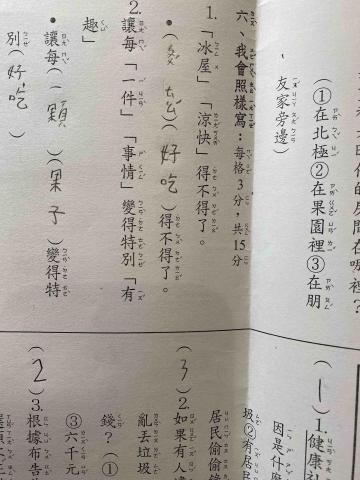 的房間在哪裡？
①在北極②在果園裡③在朋
友家旁邊）
六、我會照樣寫：每格3分，共15分
1.「冰屋」「涼快」得不得了。
•（好吃）得不得了。
2.讓每「一件」「事情」變得特別「有
趣」
•讓每（一顆）（果子）變得特
別（好吃）
（1）1.健康
因是什麼
圾②有居民
居民偷偷
（3）2.如果有人
亂丟垃圾
錢？（①
③六千元
（2）3.根據布告